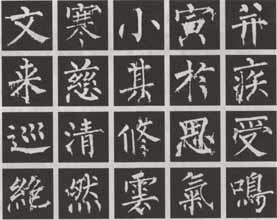 文寒小寅并
来慈其於疾
巡清修思受
絕然雲氣鳴